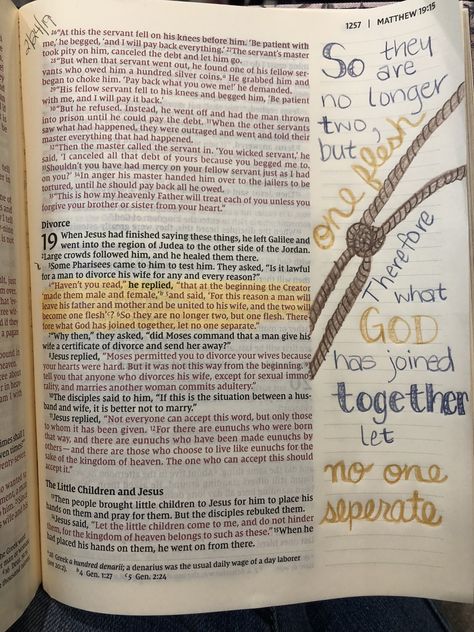 2/20/19
1257 | MATTHEW 19:15
²⁶"At this the servant fell on his knees before him. 'Be patient with
me,' he begged, 'and I will pay back everything.' ²⁷The servant's master
took pity on him, canceled the debt and let him go.
²⁸"But when that servant went out, he found one of his fellow ser-
vants who owed him a hundred silver coins.ᵃ He grabbed him and
began to choke him. 'Pay back what you owe me!' he demanded.
²⁹"His fellow servant fell to his knees and begged him, 'Be patient
with me, and I will pay it back.'
³⁰"But he refused. Instead, he went off and had the man thrown
into prison until he could pay the debt. ³¹When the other servants
saw what had happened, they were outraged and went and told their
master everything that had happened.
³²"Then the master called the servant in. 'You wicked servant,' he
said, 'I canceled all that debt of yours because you begged me to.
³³Shouldn't you have had mercy on your fellow servant just as I had
on you?' ³⁴In anger his master handed him over to the jailers to be
tortured, until he should pay back all he owed.
³⁵"This is how my heavenly Father will treat each of you unless you
forgive your brother or sister from your heart."
Divorce
19 When Jesus had finished saying these things, he left Galilee and
went into the region of Judea to the other side of the Jordan.
²Large crowds followed him, and he healed them there.
³Some Pharisees came to him to test him. They asked, "Is it lawful
for a man to divorce his wife for any and every reason?"
⁴"Haven't you read," he replied, "that at the beginning the Creator
'made them male and female,'ᵇ ⁵and said, 'For this reason a man will
leave his father and mother and be united to his wife, and the two will
become one flesh'ᶜ? ⁶So they are no longer two, but one flesh. There-
fore what God has joined together, let no one separate."
⁷"Why then," they asked, "did Moses command that a man give his
wife a certificate of divorce and send her away?"
⁸Jesus replied, "Moses permitted you to divorce your wives because
your hearts were hard. But it was not this way from the beginning. ⁹I
tell you that anyone who divorces his wife, except for sexual immo-
rality, and marries another woman commits adultery."
¹⁰The disciples said to him, "If this is the situation between a hus-
band and wife, it is better not to marry."
¹¹Jesus replied, "Not everyone can accept this word, but only those
to whom it has been given. ¹²For there are eunuchs who were born
that way, and there are eunuchs who have been made eunuchs by
others—and there are those who choose to live like eunuchs for the
sake of the kingdom of heaven. The one who can accept this should
accept it."
The Little Children and Jesus
¹³Then people brought little children to Jesus for him to place his
hands on them and pray for them. But the disciples rebuked them.
¹⁴Jesus said, "Let the little children come to me, and do not hinder
them, for the kingdom of heaven belongs to such as these." ¹⁵When he
had placed his hands on them, he went on from there.
ᵃ28 Greek a hundred denarii; a denarius was the usual daily wage of a day laborer
(see 20:2). ᵇ4 Gen. 1:27 ᶜ5 Gen. 2:24
So they
are
no longer
two,
but
one flesh
Therefore
what
GOD
has joined
together
let
no one
seperate